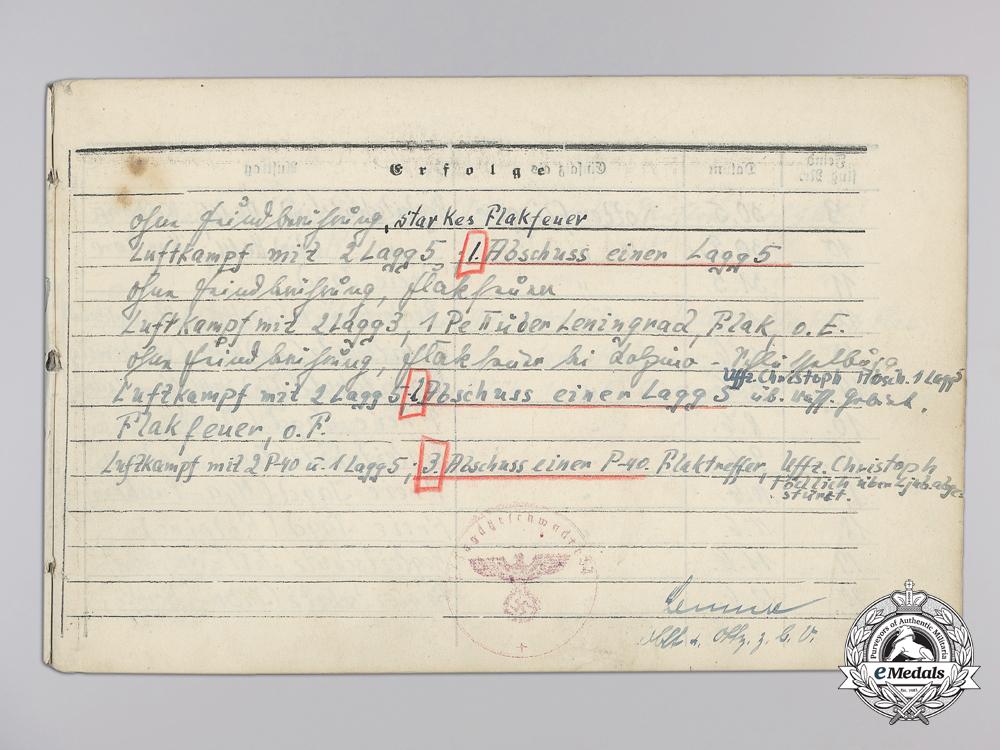 Erfolge
ohne Feindberührung, starkes Flakfeuer
Luftkampf mit 2 Lagg 5, 1. Abschuss einer Lagg 5
ohne Feindberührung, Flakfeuer
Luftkampf mit 2 Lagg 3, 1 Pe II über Leningrad, Flak, o. E.
ohne Feindberührung, Flakfeuer bei - Schlüsselburg
Uffz. Christoph 1 Lagg 5
Luftkampf mit 2 Lagg 5 - Abschuss einer Lagg 5 üb.
Flakfeuer, o. F.
Luftkampf mit 2 P-40 u. 1 Lagg 5, 3. Abschuss einer P-40. Flaktreffer, Uffz. Christoph
tödlich über Ljub. abge-
stürzt.
Jagdgeschwader 54
u. Offz. z. b. V.
Purveyors of Authentic Militaria
eMedals